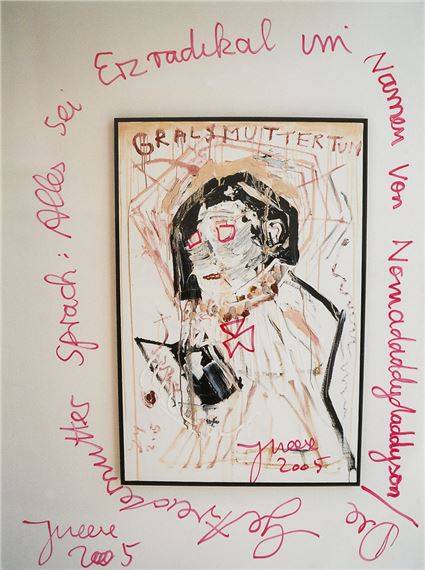 Die Getreidemutter sprach: Alles sei Erzradikal im Namen von Nomaddddydaddyson/
GRALSMUTTERTUM
JMeese
2005
JMeese
2005